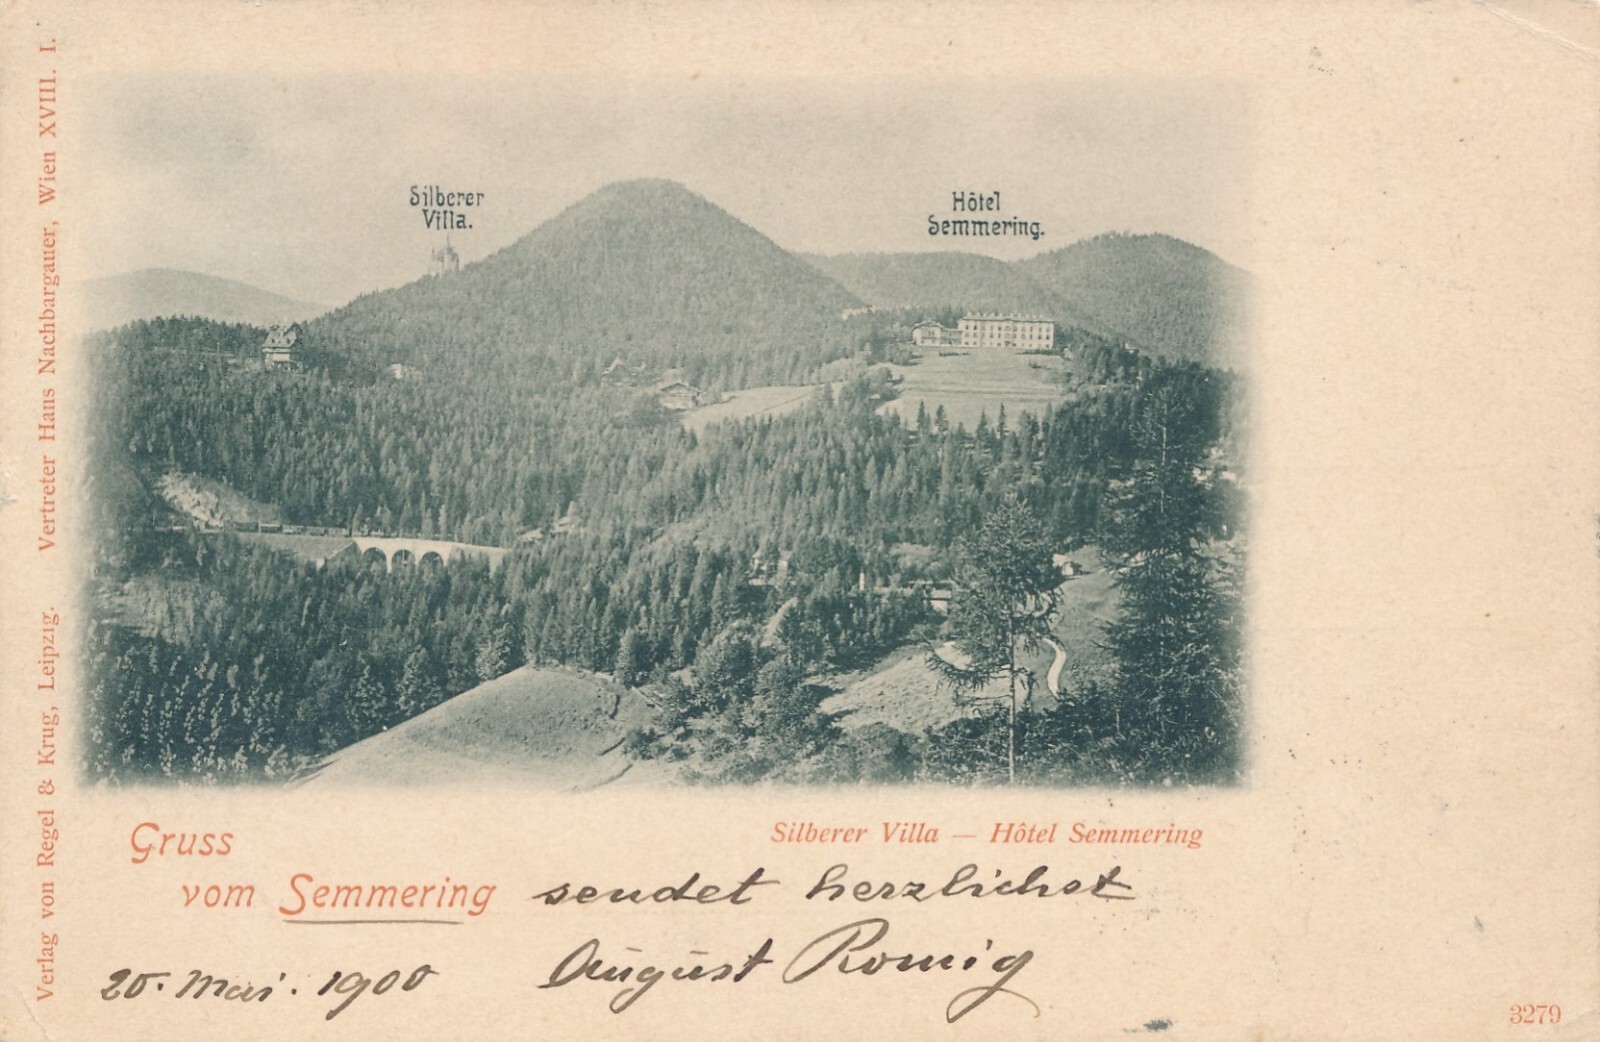 Verlag von Regel & Krug, Leipzig. Vertreter Hans Nachbargauer, Wien XVIII. I.
Silberer
Villa.
Hôtel
Semmering.
Silberer Villa — Hôtel Semmering
Gruss
vom Semmering sendet herzlichst
20. Mai. 1900 August Romig
3279